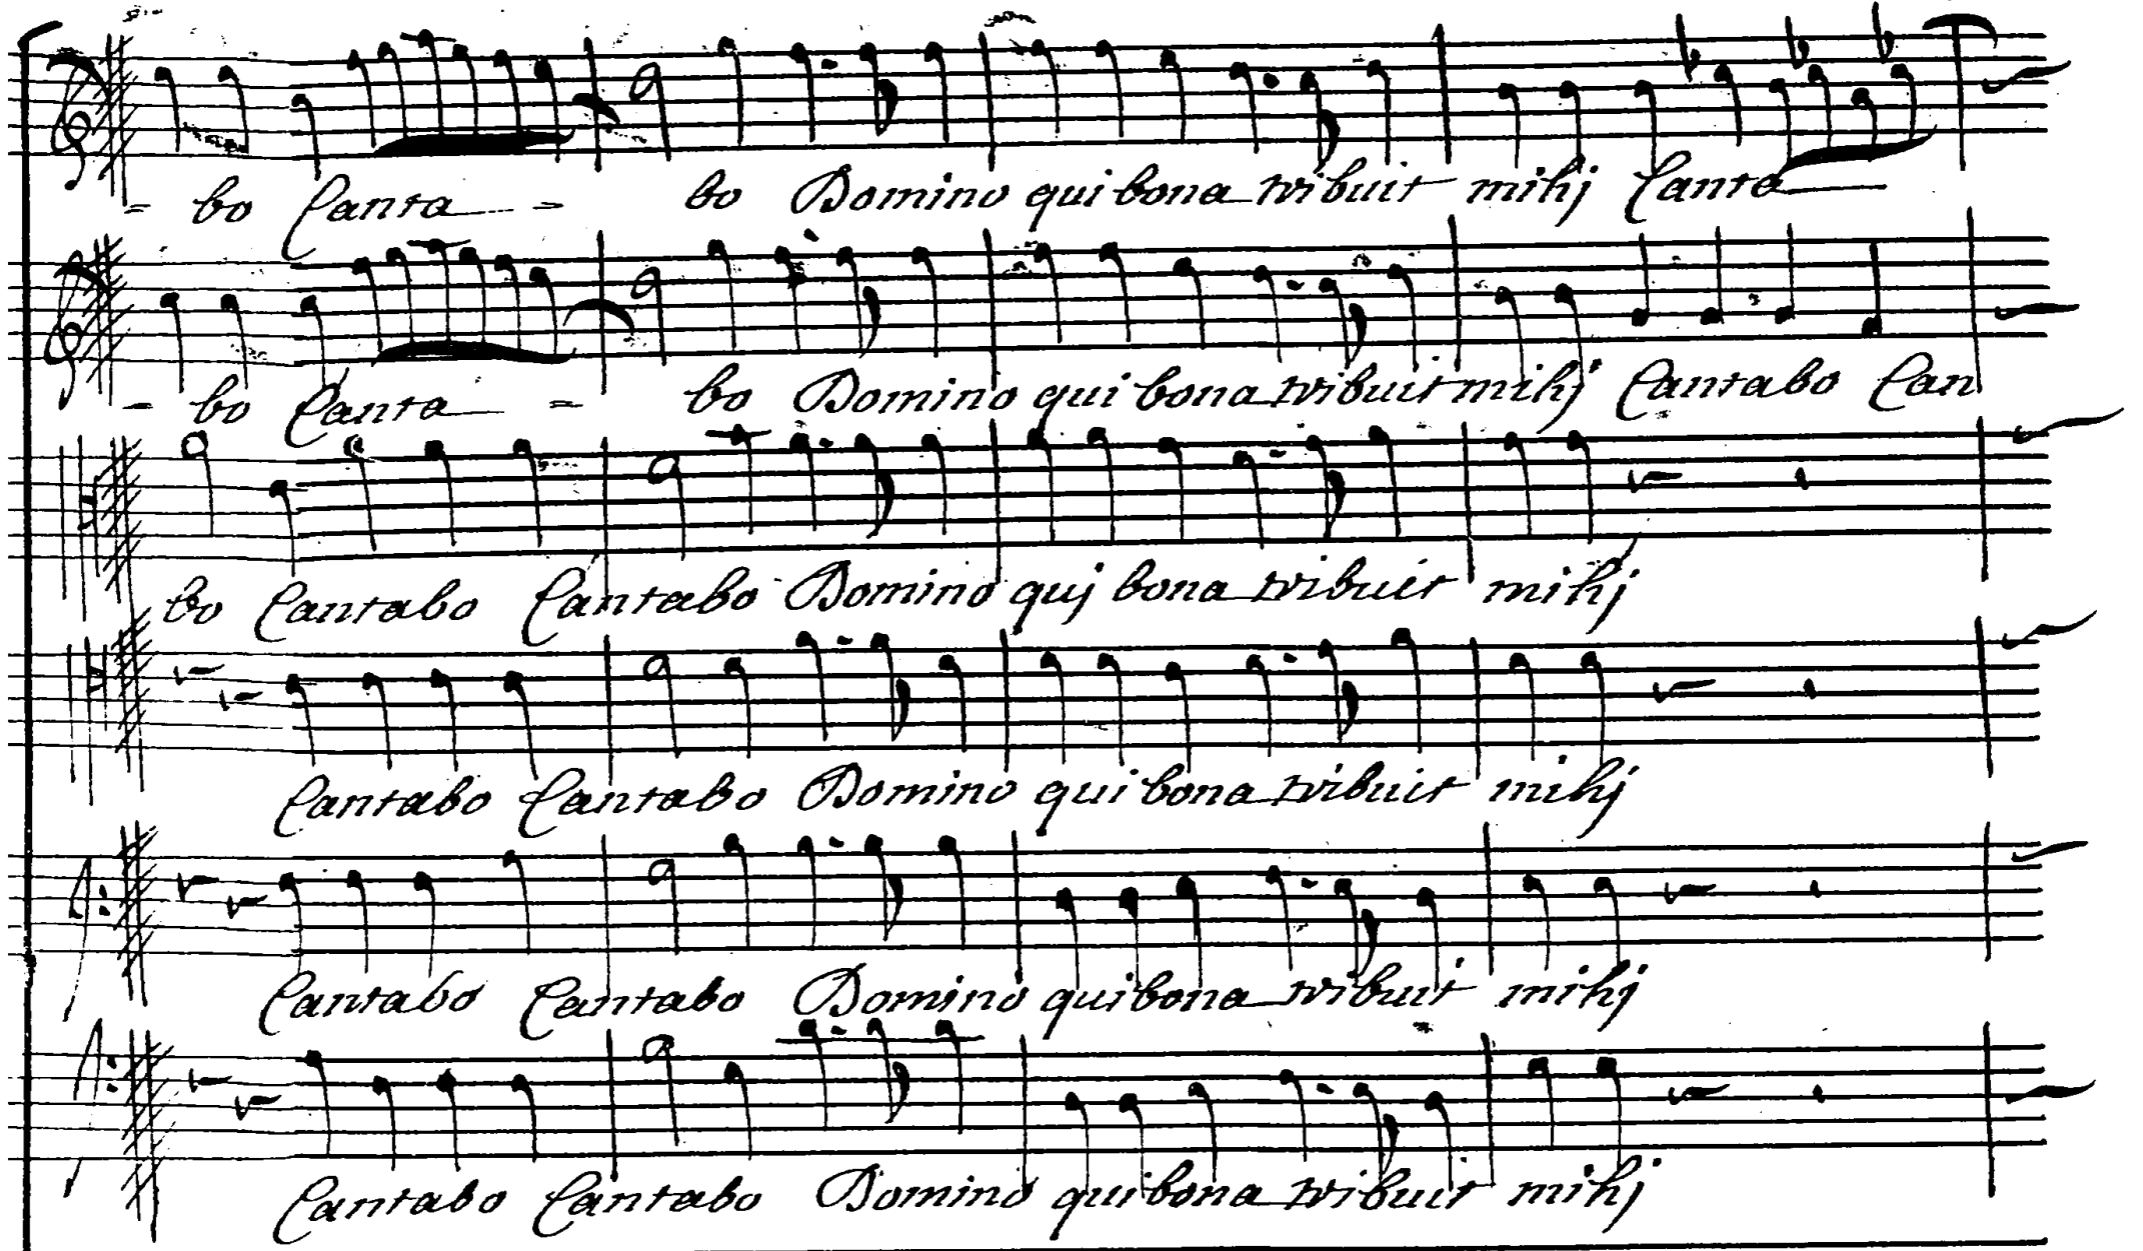 - bo Canta - = bo Domino qui bona tribuit mihj Canta
- bo Canta - = bo Domino qui bona tribuit mihj Cantabo Can
bo Cantabo Cantabo Domino quj bona tribuit mihj
Cantabo Cantabo Domino qui bona tribuit mihj
Cantabo Cantabo Domino qui bona tribuit mihj
Cantabo Cantabo Domino qui bona tribuit mihj